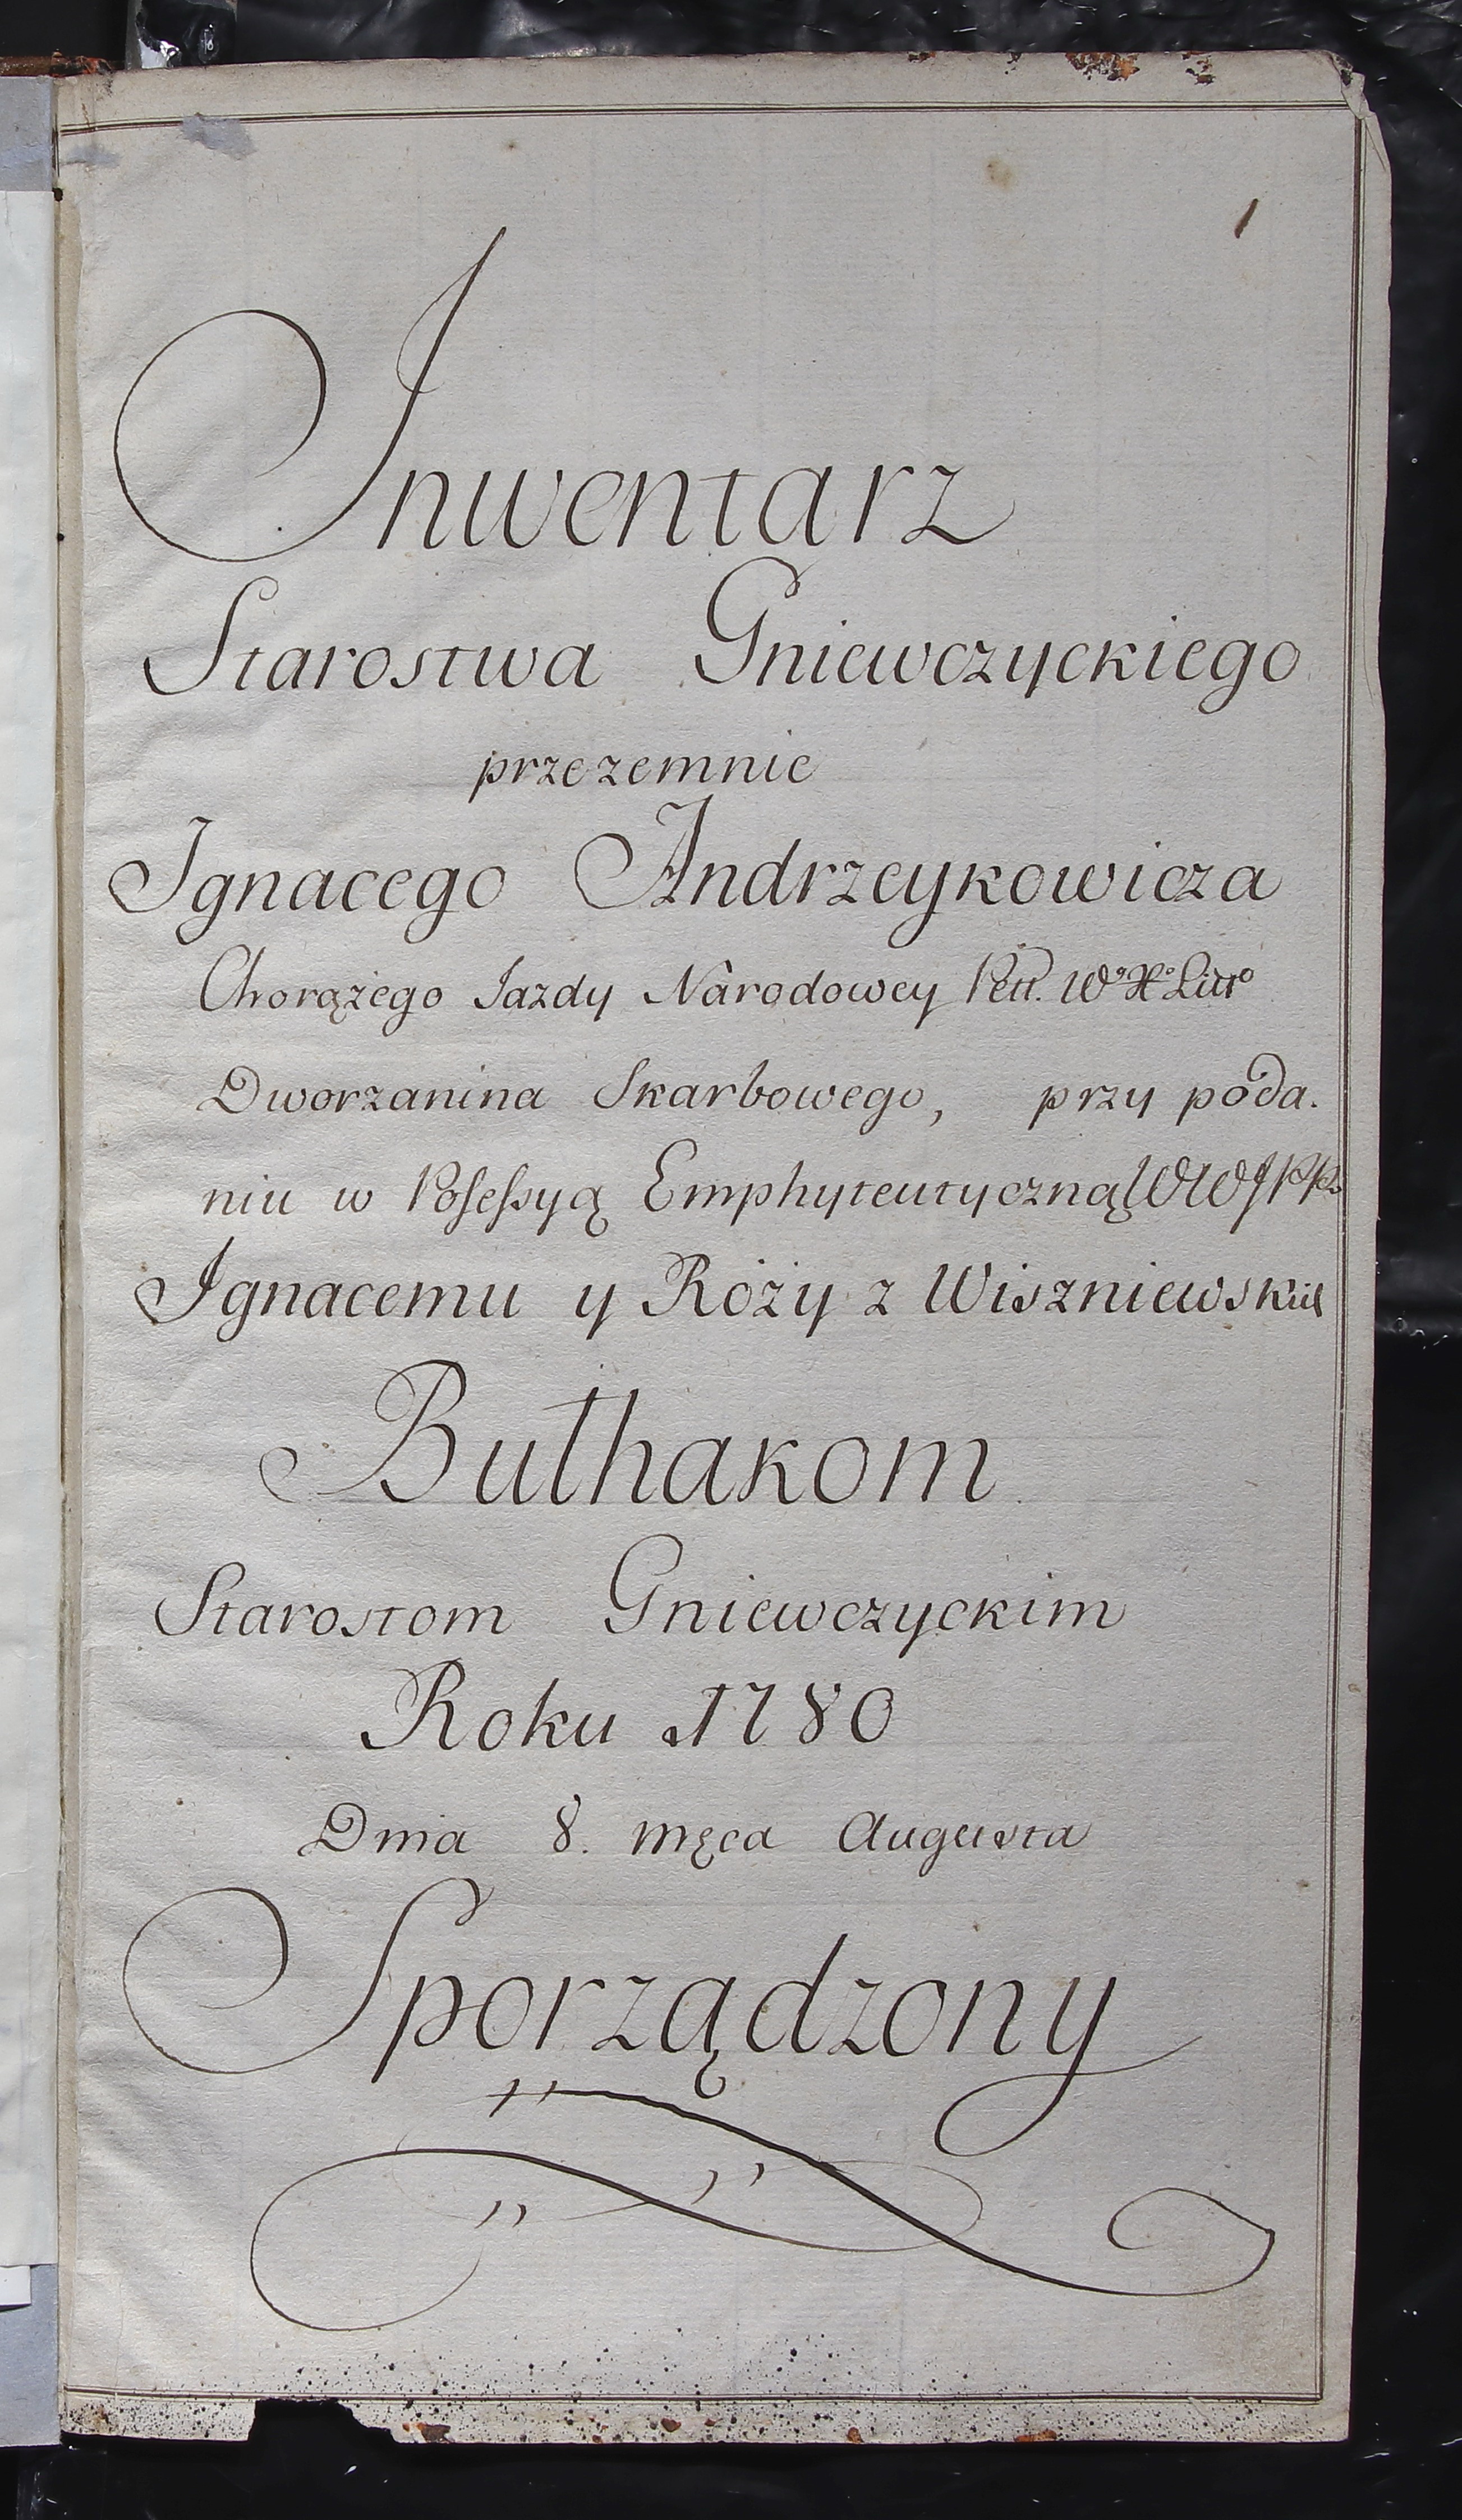 1
Inwentarz
Starostwa Gniewczyckiego
przezemnie
Ignacego Andrzeykowicza
Chorążego Jazdy Narodowey Pett. Wo Xo Litto
Dworzanina Skarbowego, przy poda.
niu w Possessyą Emphyteutyczną WWJPP
Ignacemu y Róży z Wiszniewskich
Bułhakom
Starostom Gniewczyckim
Roku 1780
Dnia 8. męca Augusta
Sporządzony